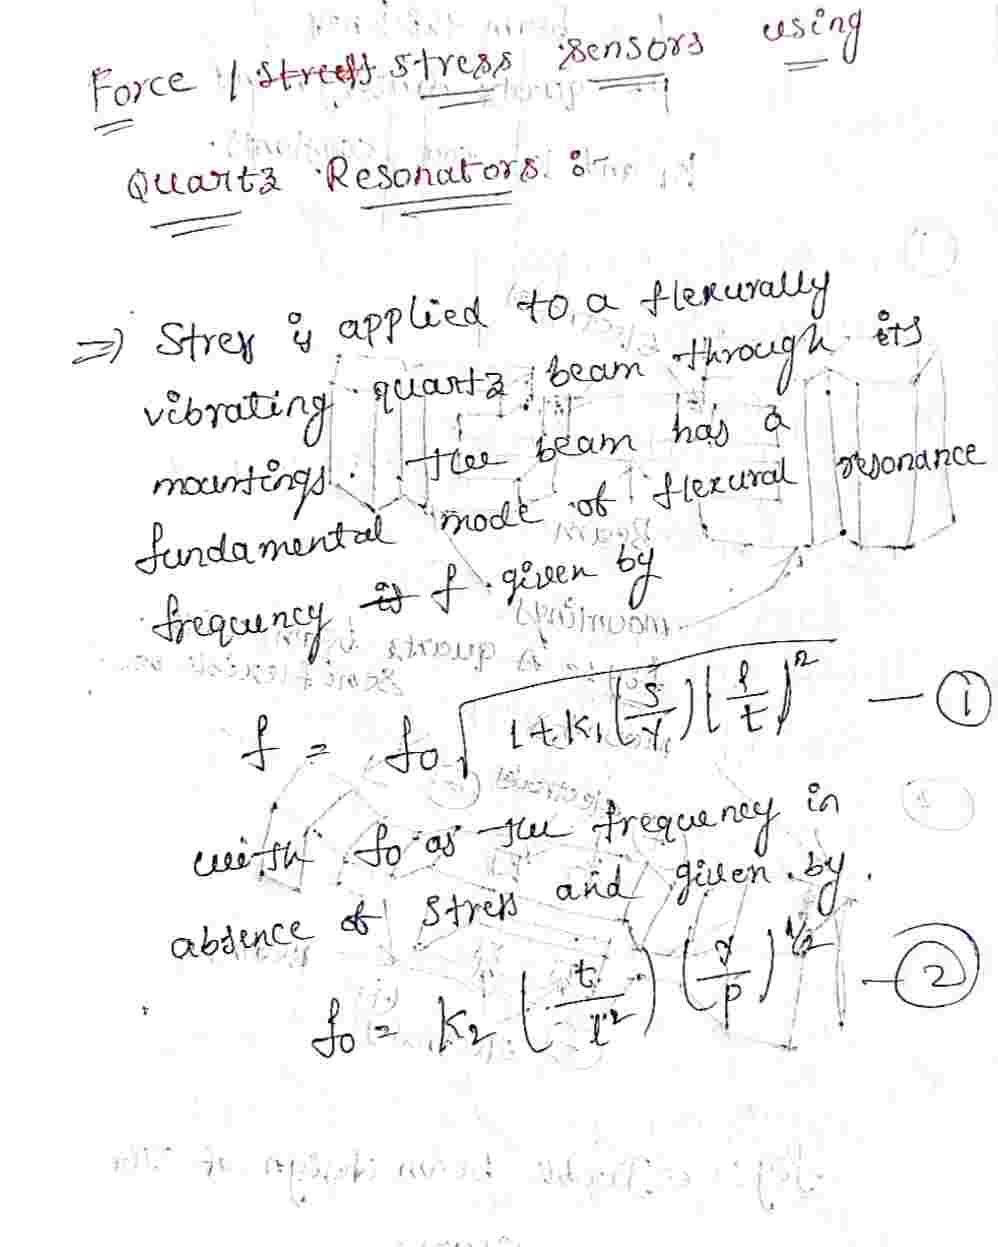 Force / stress sensors using
Quartz Resonators :-
=> Stress is applied to a flexurally
vibrating quartz beam through its
mountings. The beam has a
fundamental mode of flexural resonance
frequency f given by
f = f₀ √(1+K₁(S/Y)(l/t)²) — ①
with f₀ as the frequency in
absence of stress and given by.
f₀ = K₂ (t/l²) (Y/ρ)^1/2 — ②